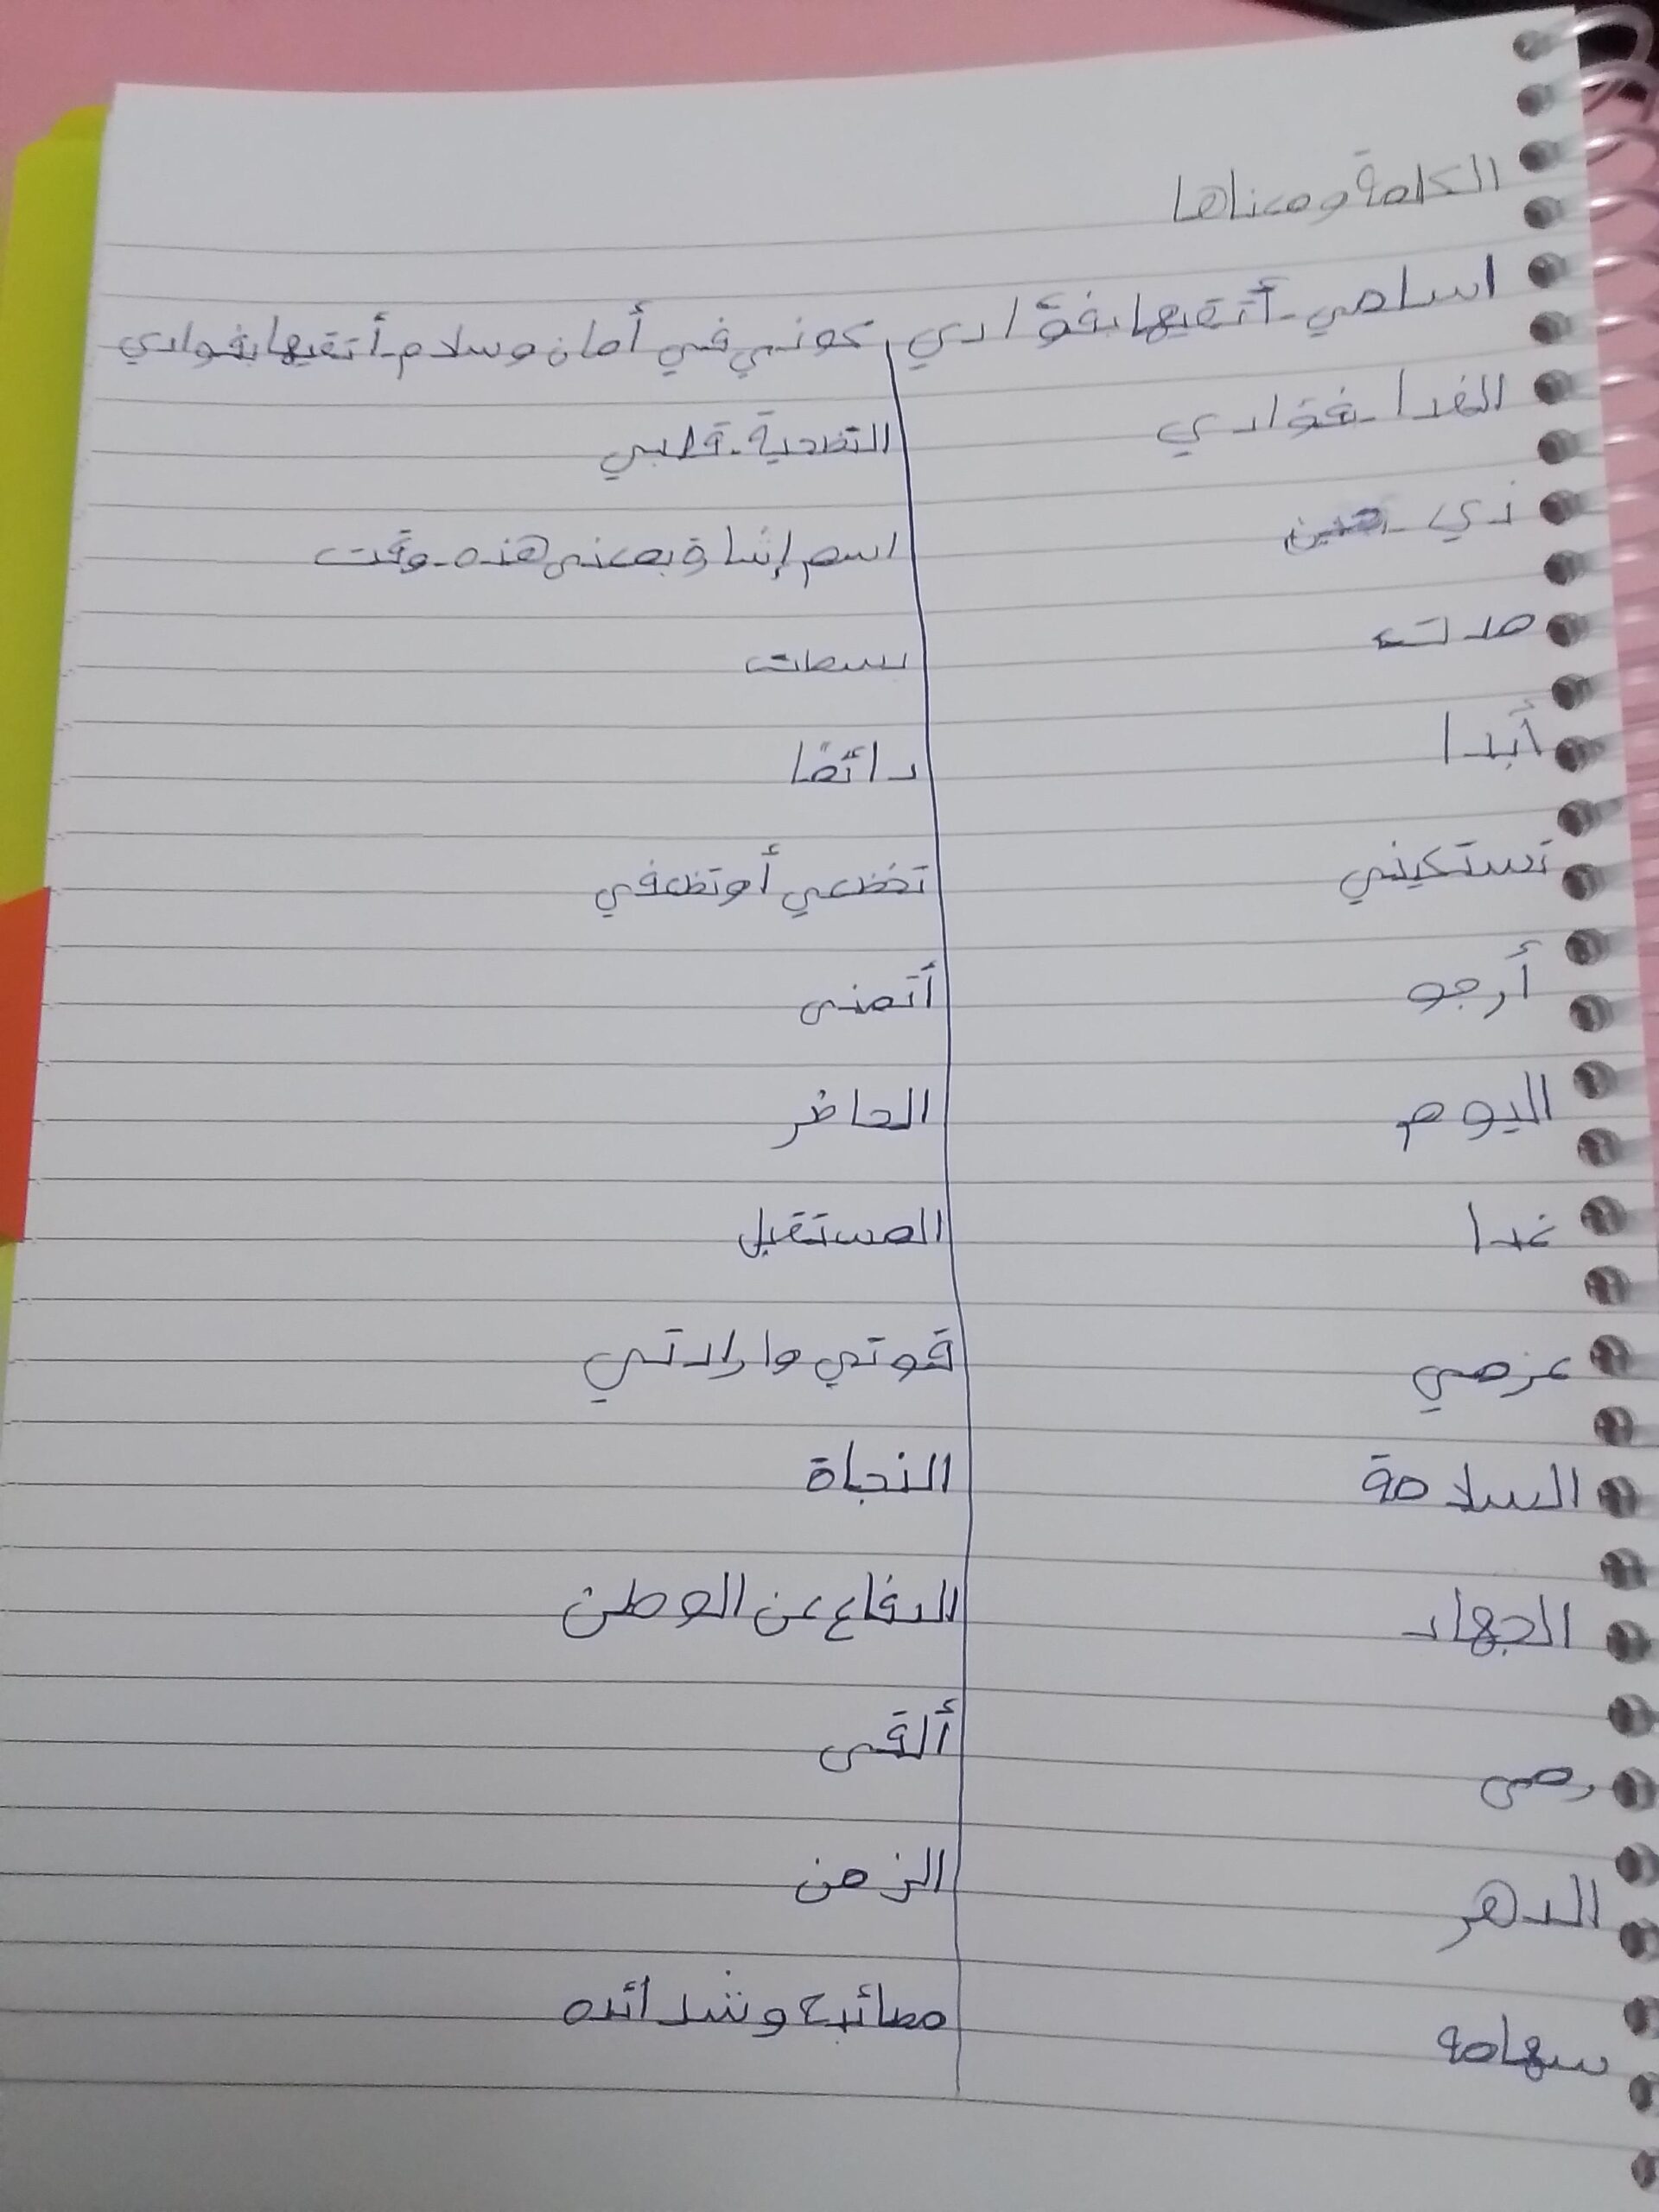 الكلمة ومعناها
اسلمي - أتقيها بفؤادي كوني في أمان وسلام - أتقيها بفوادي
الفدا - فؤادي التضحية - قلبي
ذي - حين اسم إشاة بمعنى هذه - وقت
مدت بسطت
أبدا دائمًا
تستكيني تخضعي أو تضعفي
أرجو أتمنى
اليوم الحاضر
غدا المستقبل
عزمي قوتي وإرادتي
السلامة النجاة
الجهاد الدفاع عن الوطن
رمى ألقى
الدهر الزمن
سهامه مصائبه وشدائده